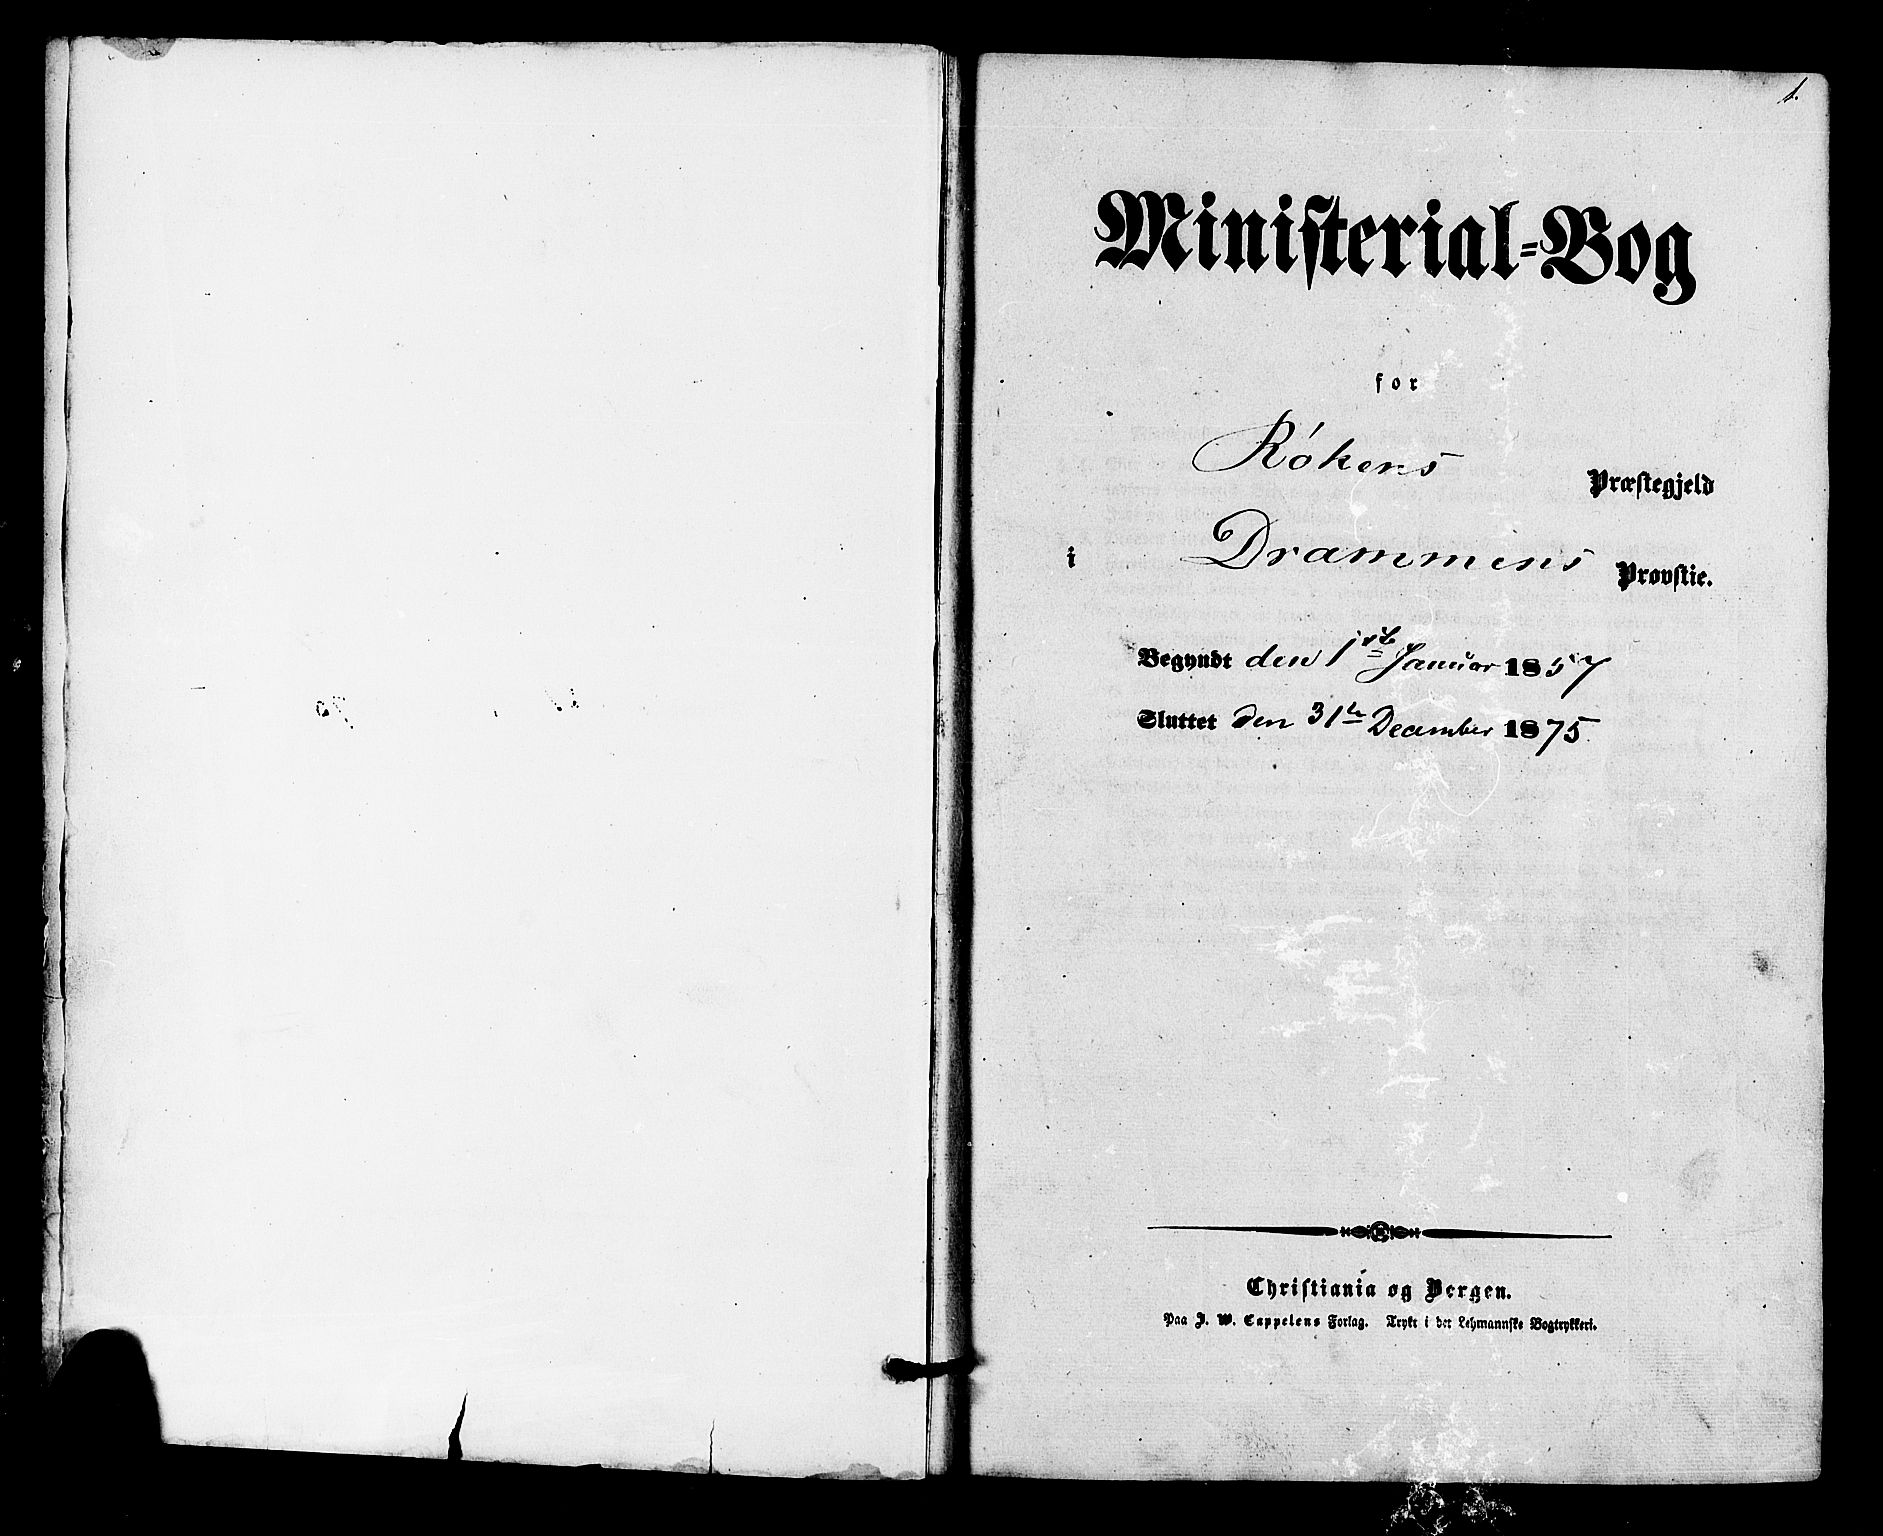 1.
Ministerial-Bog
for
Rökens Præstegjeld
i Drammens Provstie.
Begyndt den 1ste Januar 1857
Sluttet den 31te December 1875.
Christiania og Bergen.
Paa J. W. Cappelens Forlag. Trykt i det Lehmannske Bogtrykkeri.